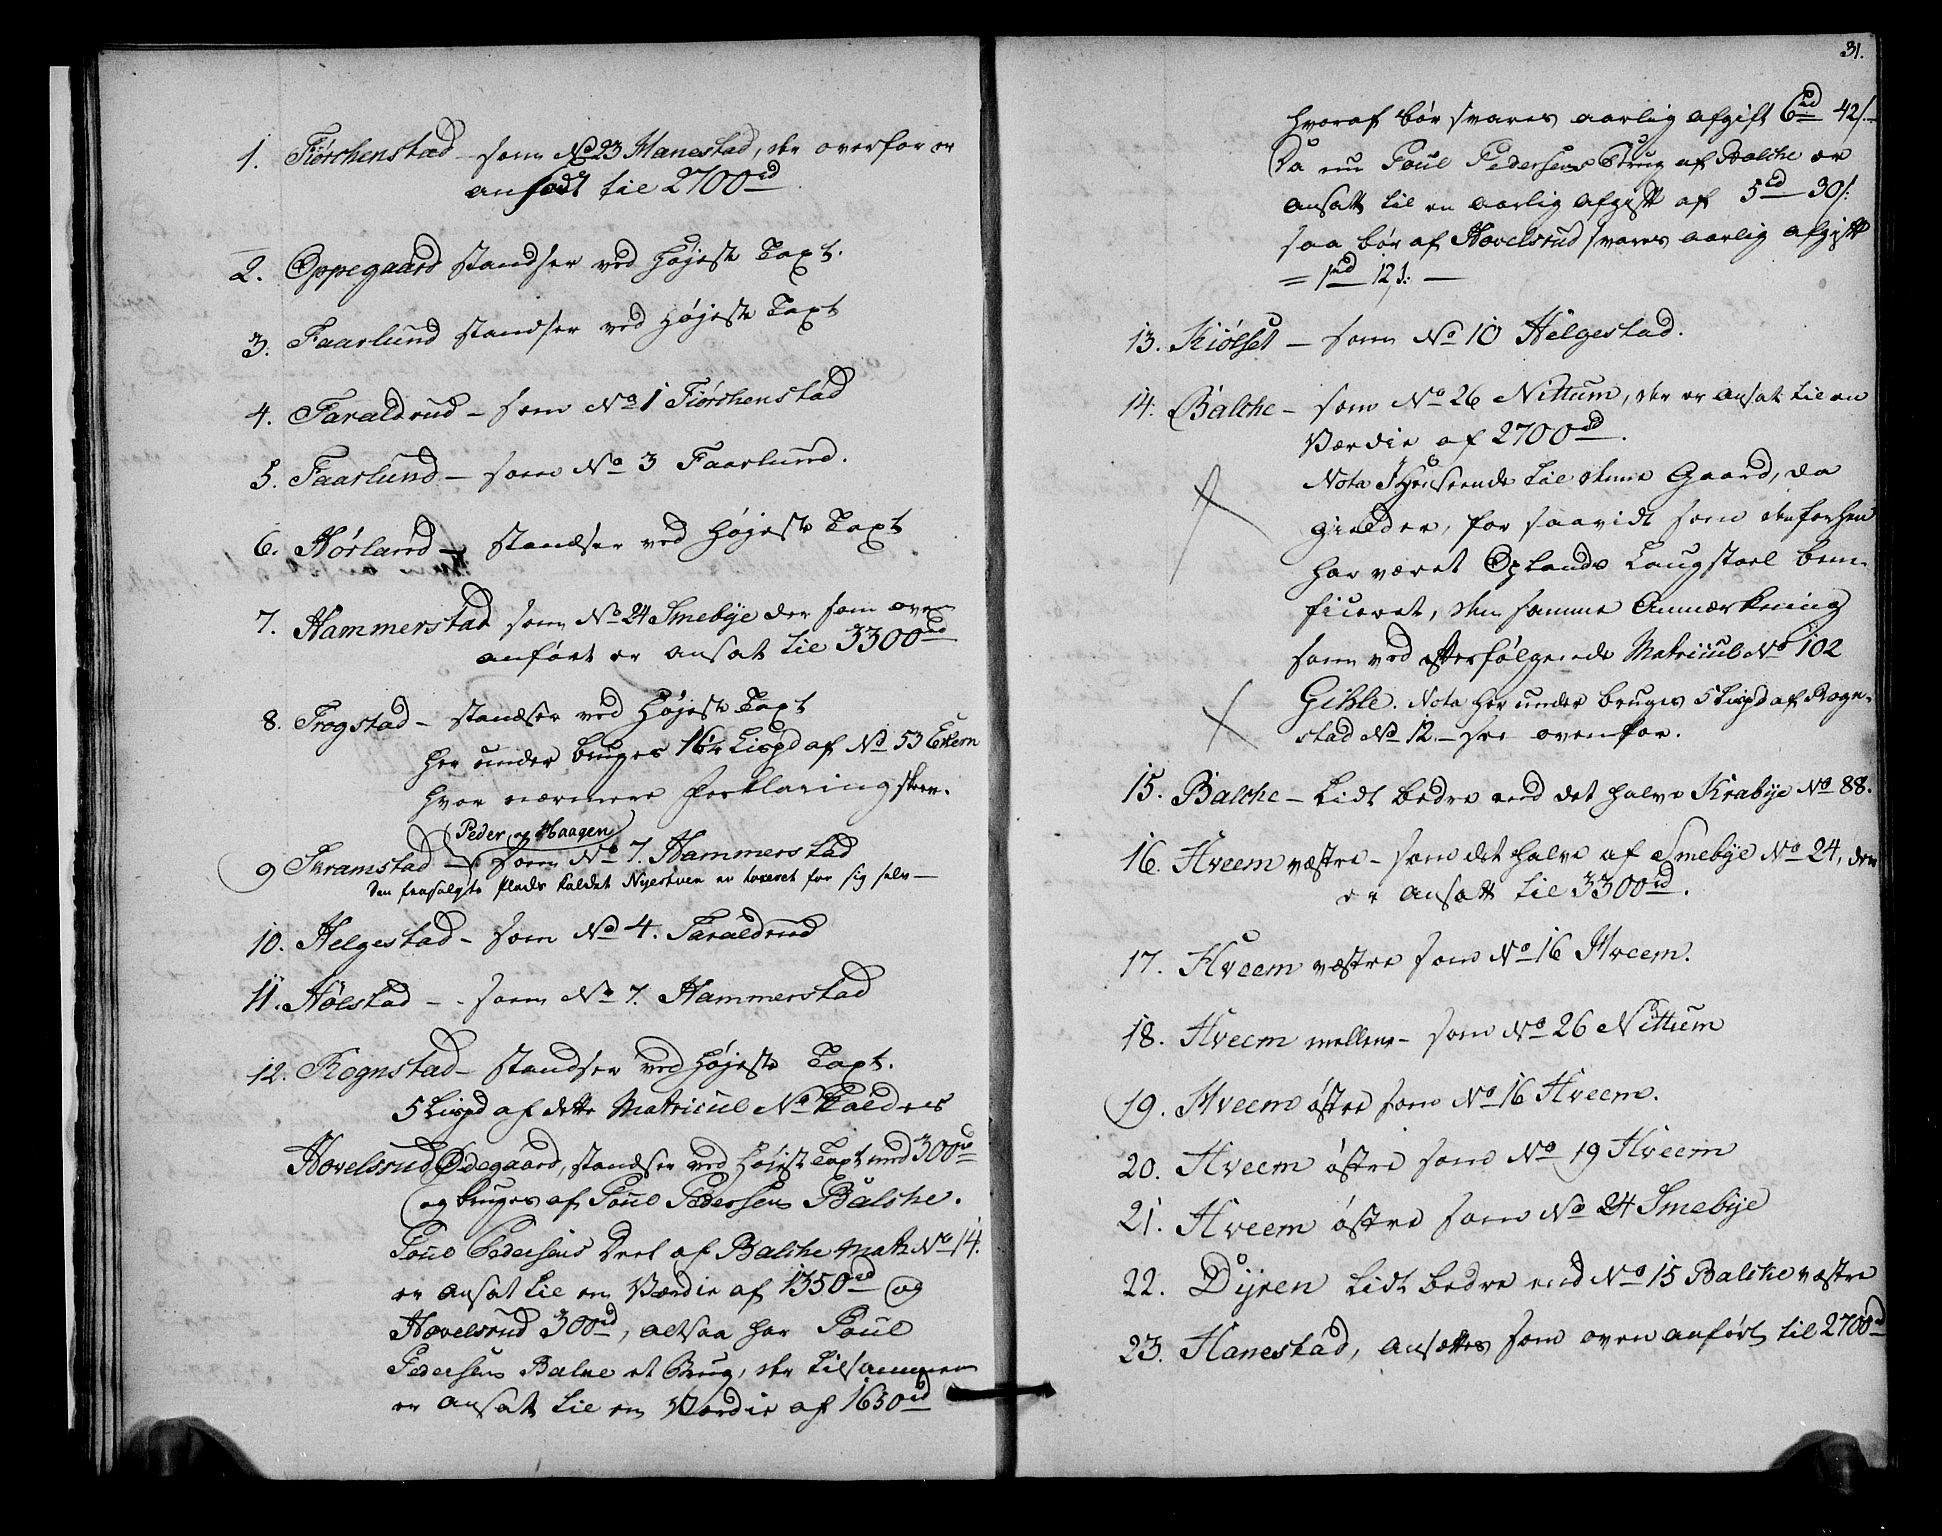 1. Tiørshenstad – som No 23 Hanestad, der overfor er
ansadt til 2700rd
2. Oppegaard standser ved Højeste Taxt.
3. Faarlund standser ved Højeste Taxt
4. Taraldrud – som No 1 Tiørshenstad
5. Faarlund – som No 3 Faarlund.
6. Hørland – standser ved Højeste Taxt
7. Hammerstad som No 24 Smebye der som oven
anført er ansat til 3300rd
8. Trogstad – standser ved Højeste Taxt
her under bruges Lispd af No 53 Ekern
hvor nærmere Forklaring skeer.
Peder og Haagen
9 Skramstad – som No 7. Hammerstad
Den frasolgte Plads kaldet Nyestuen er taxeret for sig selv –
10. Helgestad – som No 4. Taraldrud
11. Hølstad – som No 7. Hammerstad
12. Rognstad – standser ved Højeste Taxt.
5 Lispd af dette Matricul No kaldees
Hovelsrud Ødegaard, standser ved Højest Taxt med 300rd
og bruges af Poul Pedersens Balche.
Poul Pedersens Deel af Balche Mat: No 14.
er ansat til en Værdie af 1350rd og
Hovelsrud 300rd, altsaa har Poul
Pedersens Balke et Brug, der tilsammen
er ansatt til en Værdie af 1650rd
31.
hvoraf bør svares aarlig afgift 6rd 42/.
Da nu Poul Pedersens Brug af Balche er
ansatt til en aarlig afgift af 5rd 30/:
saa bør af Hovelsrud svares aarlig afgift
= 1rd 12/: –
13. Kiølset – som No 10 Helgestad.
14. Balche – som No 26 Nittum, der er ansat til en
Værdie af 2700rd.
Nota I Henseende til denne Gaard, da
gielder, for saavidt som den forhen
har været Oplands Laugstoel bene-
ficeret, den samme Anmærkning
som ved efterfølgende Matricul No 102
Gihle. Nota herunder bruges 5 Lispd af Rogn-
stad No 12 – see ovenfor.
15. Balche – Lidt bedre end det halve Krabye No 88.
16. Hveem væstre – som det halve af Smebye No 24, der
er ansatt til 3300rd.
17. Hveem væstre som No 16 Hveem.
18. Hveem mellem – som No 26 Nittum
19. Hveem østre som No 16 Hveem.
20. Hveem østre som No 19 Hveem
21. Hveem østre som No 24 Smebye
22. Dyren lidt bedre end No 15 Balche væstre
23. Hanestad, ansættes som oven anført til 2700rd